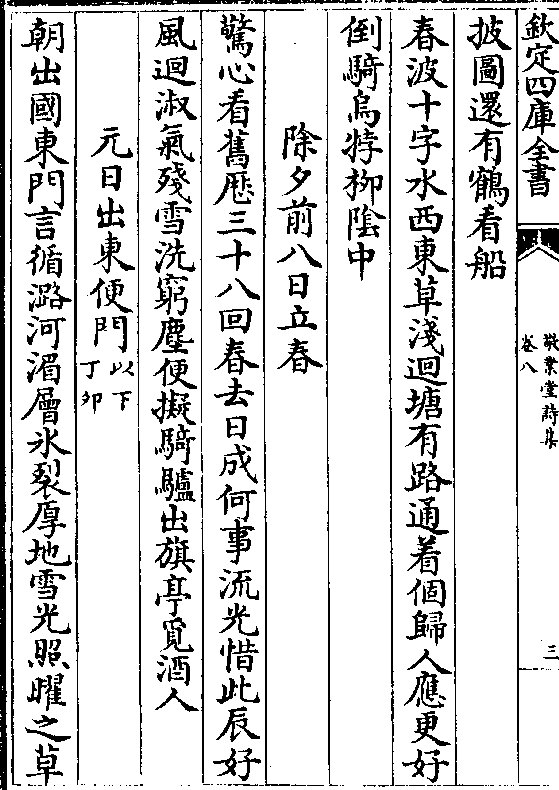 欽定四庫全書
敬業堂詩集
卷八
三
披圖還有鶴看船
春波十字水西東草淺迴塘有路通着個歸人應更好
倒騎烏牸栁隂中
除夕前八日立春
驚心看舊厯三十八回春去日成何事流光惜此辰好
風迴淑氣殘雪洗窮塵便擬騎驢出旗亭覓酒人
元日出東便門以下丁夘
朝出國東門言循潞河湄層氷裂厚地雪光照曜之草